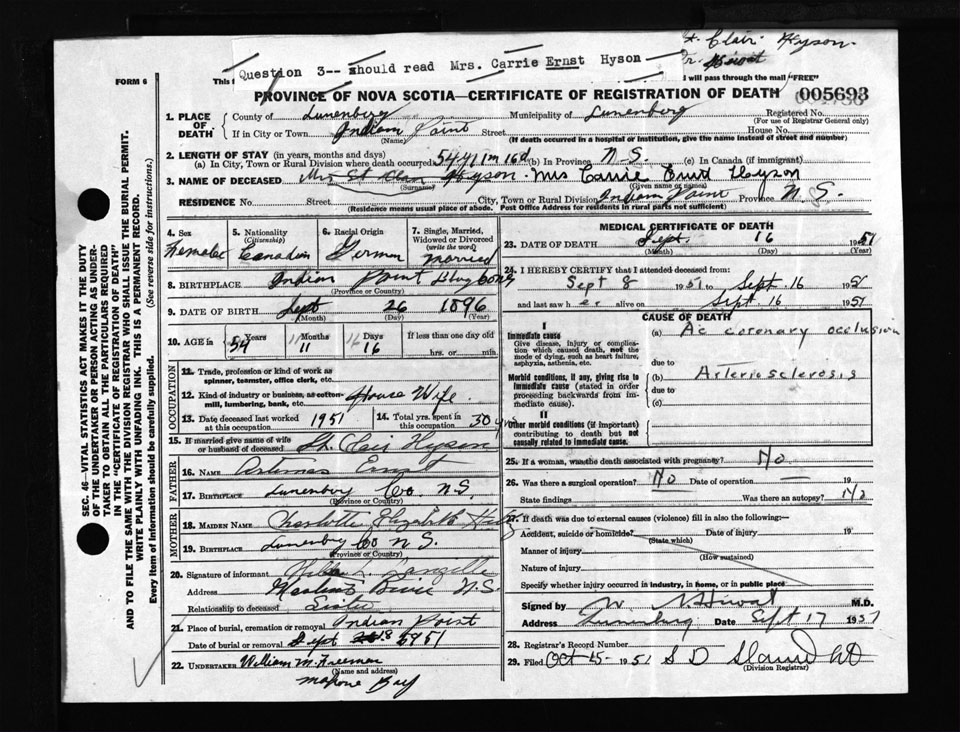 St. Clair Hyson
Question 3-- should read Mrs. Carrie Ernst Hyson
FORM 6
This f
will pass through the mail "FREE"
PROVINCE OF NOVA SCOTIA—CERTIFICATE OF REGISTRATION OF DEATH
005693
1. PLACE OF DEATH
County of Lunenburg Municipality of Lunenburg Registered No.
(For use of Registrar General only)
If in City or Town Indian Point Street House No.
(Name) (If death occurred in a hospital or institution, give the name instead of street and number)
2. LENGTH OF STAY (in years, months and days)
(a) In City, Town or Rural Division where death occurred 54 y 11 m 16 d (b) In Province N.S. (c) In Canada (if immigrant)
3. NAME OF DECEASED Mrs St Clair Hyson. Mrs Carrie Ernst Hyson
(Surname) (Given name or names)
RESIDENCE No. Street City, Town or Rural Division Indian Point Province N.S.
(Residence means usual place of abode. Post Office Address for residents in rural parts not sufficient)
4. Sex Female
5. Nationality (Citizenship) Canadian
6. Racial Origin German
7. Single, Married, Widowed or Divorced (write the word) Married
8. BIRTHPLACE Indian Point
(Province or Country)
9. DATE OF BIRTH Sept 26 1896
(Month) (Day) (Year)
10. AGE in 54 Years 11 Months 16 Days If less than one day old
hrs. or min.
OCCUPATION
11. Trade, profession or kind of work as spinner, teamster, office clerk, etc.
12. Kind of industry or business, as cotton-mill, lumbering, bank, etc. House Wife
13. Date deceased last worked at this occupation 1951
14. Total yrs. spent in this occupation 30 yrs
15. If married give name of wife or husband of deceased St. Clair Hyson
FATHER
16. NAME Artemas Ernst
17. BIRTHPLACE Lunenburg Co. N.S.
(Province or Country)
MOTHER
18. MAIDEN NAME Charlotte Elizabeth
19. BIRTHPLACE Lunenburg Co N S.
(Province or Country)
20. Signature of informant
Address N.S.
Relationship to deceased Sister
21. Place of burial, cremation or removal Indian Point
Date of burial or removal Sept 18 1951
22. UNDERTAKER William M. Freeman
(Name and address)
Mahone Bay
MEDICAL CERTIFICATE OF DEATH
23. DATE OF DEATH Sept. 16 1951
(Month) (Day) (Year)
24. I HEREBY CERTIFY that I attended deceased from:
Sept 8 1951 to Sept. 16 1951
and last saw her alive on Sept. 16 1951
CAUSE OF DEATH
I
Immediate cause
Give disease, injury or complication which caused death, not the mode of dying, such as heart failure, asphyxia, asthenia, etc.
(a) Ac coronary occlusion
due to
Morbid conditions, if any, giving rise to immediate cause (stated in order proceeding backwards from immediate cause).
(b) Arteriosclerosis
due to
(c)
II
Other morbid conditions (if important) contributing to death but not causally related to immediate cause.
25. If a woman, was the death associated with pregnancy? No
26. Was there a surgical operation? No Date of operation 19
State findings Was there an autopsy? No
27. If death was due to external causes (violence) fill in also the following:—
Accident, suicide or homicide? Date of injury 19
(State which)
Manner of injury
(How sustained)
Nature of injury
Specify whether injury occurred in industry, in home, or in public place
Signed by M.D.
Address Lunenburg Date Sept 17 1951
28. Registrar's Record No.
29. Filed Oct 5 1951 S D
(Division Registrar)
SEC. 46—VITAL STATISTICS ACT MAKES IT THE DUTY
OF THE UNDERTAKER OR PERSON ACTING AS UNDER-
TAKER TO OBTAIN ALL THE PARTICULARS REQUIRED
IN THE "CERTIFICATE OF REGISTRATION OF DEATH"
AND TO FILE THE SAME WITH THE DIVISION REGISTRAR WHO SHALL ISSUE THE BURIAL PERMIT.
WRITE PLAINLY WITH UNFADING INK. THIS IS A PERMANENT RECORD.
Every item of information should be carefully supplied. (See reverse side for instructions.)